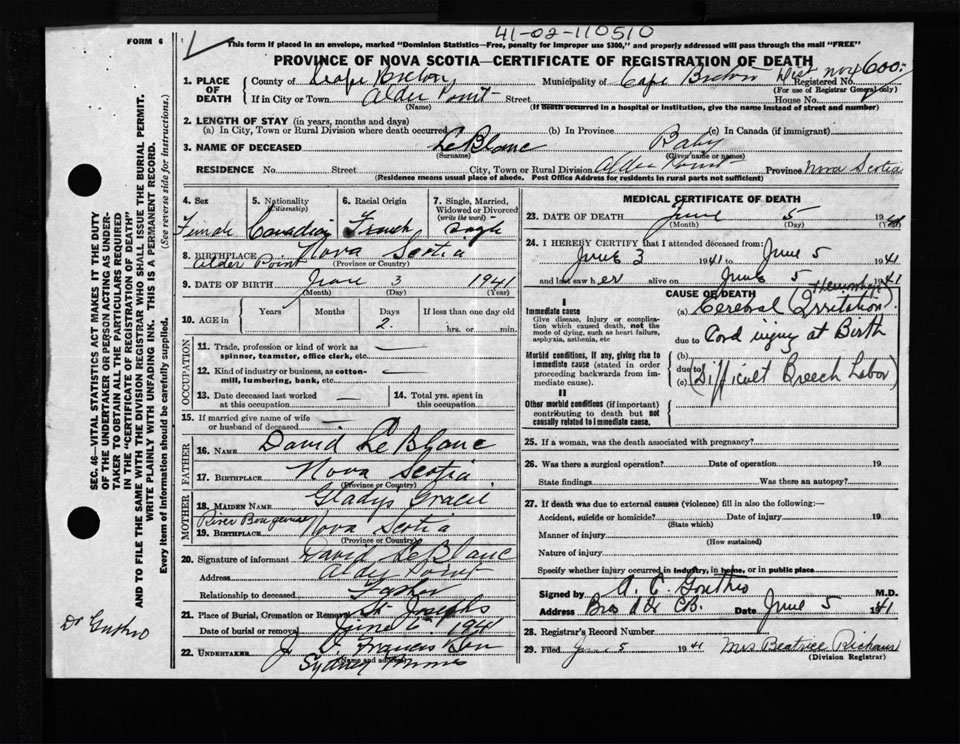 41-02-110510
FORM 6
This form if placed in an envelope, marked "Dominion Statistics—Free, penalty for improper use $300," and properly addressed will pass through the mail "FREE"
PROVINCE OF NOVA SCOTIA—CERTIFICATE OF REGISTRATION OF DEATH
1. PLACE OF DEATH
County of Cape Breton Municipality of Cape Breton Registered No. 600
(For use of Registrar General only)
If in City or Town Alder Point Street House No.
(Name) (If death occurred in a hospital or institution, give the name instead of street and number)
2. LENGTH OF STAY (in years, months and days)
(a) In City, Town or Rural Division where death occurred (b) In Province (c) In Canada (if immigrant)
3. NAME OF DECEASED LeBlanc Baby
(Surname) (Given name or names)
RESIDENCE No. Street City, Town or Rural Division Alder Point Province Nova Scotia
(Residence means usual place of abode. Post Office Address for residents in rural parts not sufficient)
4. Sex 5. Nationality (Citizenship) 6. Racial Origin 7. Single, Married, Widowed or Divorced (write the word)
Female Canadian French Single
8. BIRTHPLACE Alder Point Nova Scotia
(Province or Country)
9. DATE OF BIRTH June 3 1941
(Month) (Day) (Year)
10. AGE in Years Months Days If less than one day old
2 hrs. or min.
OCCUPATION
11. Trade, profession or kind of work as spinner, teamster, office clerk, etc.
12. Kind of industry or business, as cotton-mill, lumbering, bank, etc.
13. Date deceased last worked at this occupation
14. Total yrs. spent in this occupation
15. If married give name of wife or husband of deceased
FATHER
16. NAME David LeBlanc
17. BIRTHPLACE Nova Scotia
(Province or Country)
MOTHER
18. MAIDEN NAME Gladys
19. BIRTHPLACE River Nova Scotia
(Province or Country)
20. Signature of informant David LeBlanc
Address Alder Point
Relationship to deceased Father
21. Place of Burial, Cremation or Removal St. Josephs
Date of burial or removal June 6 1941
22. UNDERTAKER J. Francis Son
(Name and address)
Sydney Mines
MEDICAL CERTIFICATE OF DEATH
23. DATE OF DEATH June 5 1941
(Month) (Day)
24. I HEREBY CERTIFY that I attended deceased from:
June 3 1941 to June 5 1941
and last saw her alive on June 5 1941
CAUSE OF DEATH
I
Immediate cause
Give disease, injury or complication which caused death, not the mode of dying, such as heart failure, asphyxia, asthenia, etc
(a) Cerebral (Irritation)
due to Cord injury at Birth
Morbid conditions, if any, giving rise to immediate cause (stated in order proceeding backwards from immediate cause).
(b)
due to
(c) Difficult Breech Labor
II
Other morbid conditions (if important) contributing to death but not causally related to immediate cause.
25. If a woman, was the death associated with pregnancy?
26. Was there a surgical operation? Date of operation 19
State findings Was there an autopsy?
27. If death was due to external causes (violence) fill in also the following:—
Accident, suicide or homicide? Date of injury 19
(State which)
Manner of injury
(How sustained)
Nature of injury
Specify whether injury occurred in industry, in home, or in public place
Signed by M.D.
Address Date June 5 1941
28. Registrar's Record Number
29. Filed June 5 1941 Mrs Beatrice
(Division Registrar)
SEC. 46—VITAL STATISTICS ACT MAKES IT THE DUTY
OF THE UNDERTAKER OR PERSON ACTING AS UNDER-
TAKER TO OBTAIN ALL THE PARTICULARS REQUIRED
IN THE "CERTIFICATE OF REGISTRATION OF DEATH"
AND TO FILE THE SAME WITH THE DIVISION REGISTRAR WHO SHALL ISSUE THE BURIAL PERMIT.
WRITE PLAINLY WITH UNFADING INK. THIS IS A PERMANENT RECORD.
Every item of information should be carefully supplied. (See reverse side for instructions.)
Dr